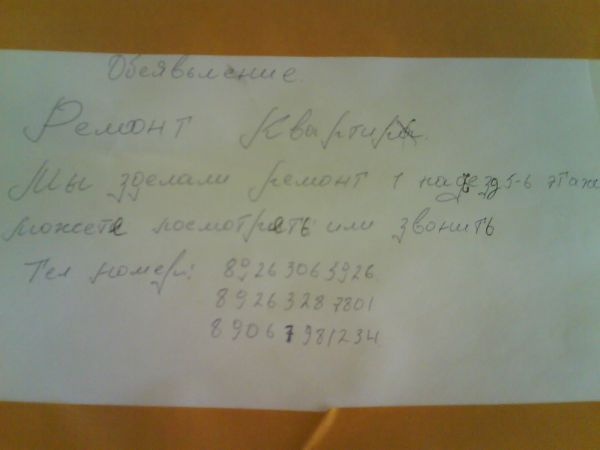 Обеявьление.
Ремонт Квартир.
Мы зделали ремонт 1 надезд 5-6 этаж
можете посмотреть или звонить
Тел номер: 89263063926
89263287801
89067981234